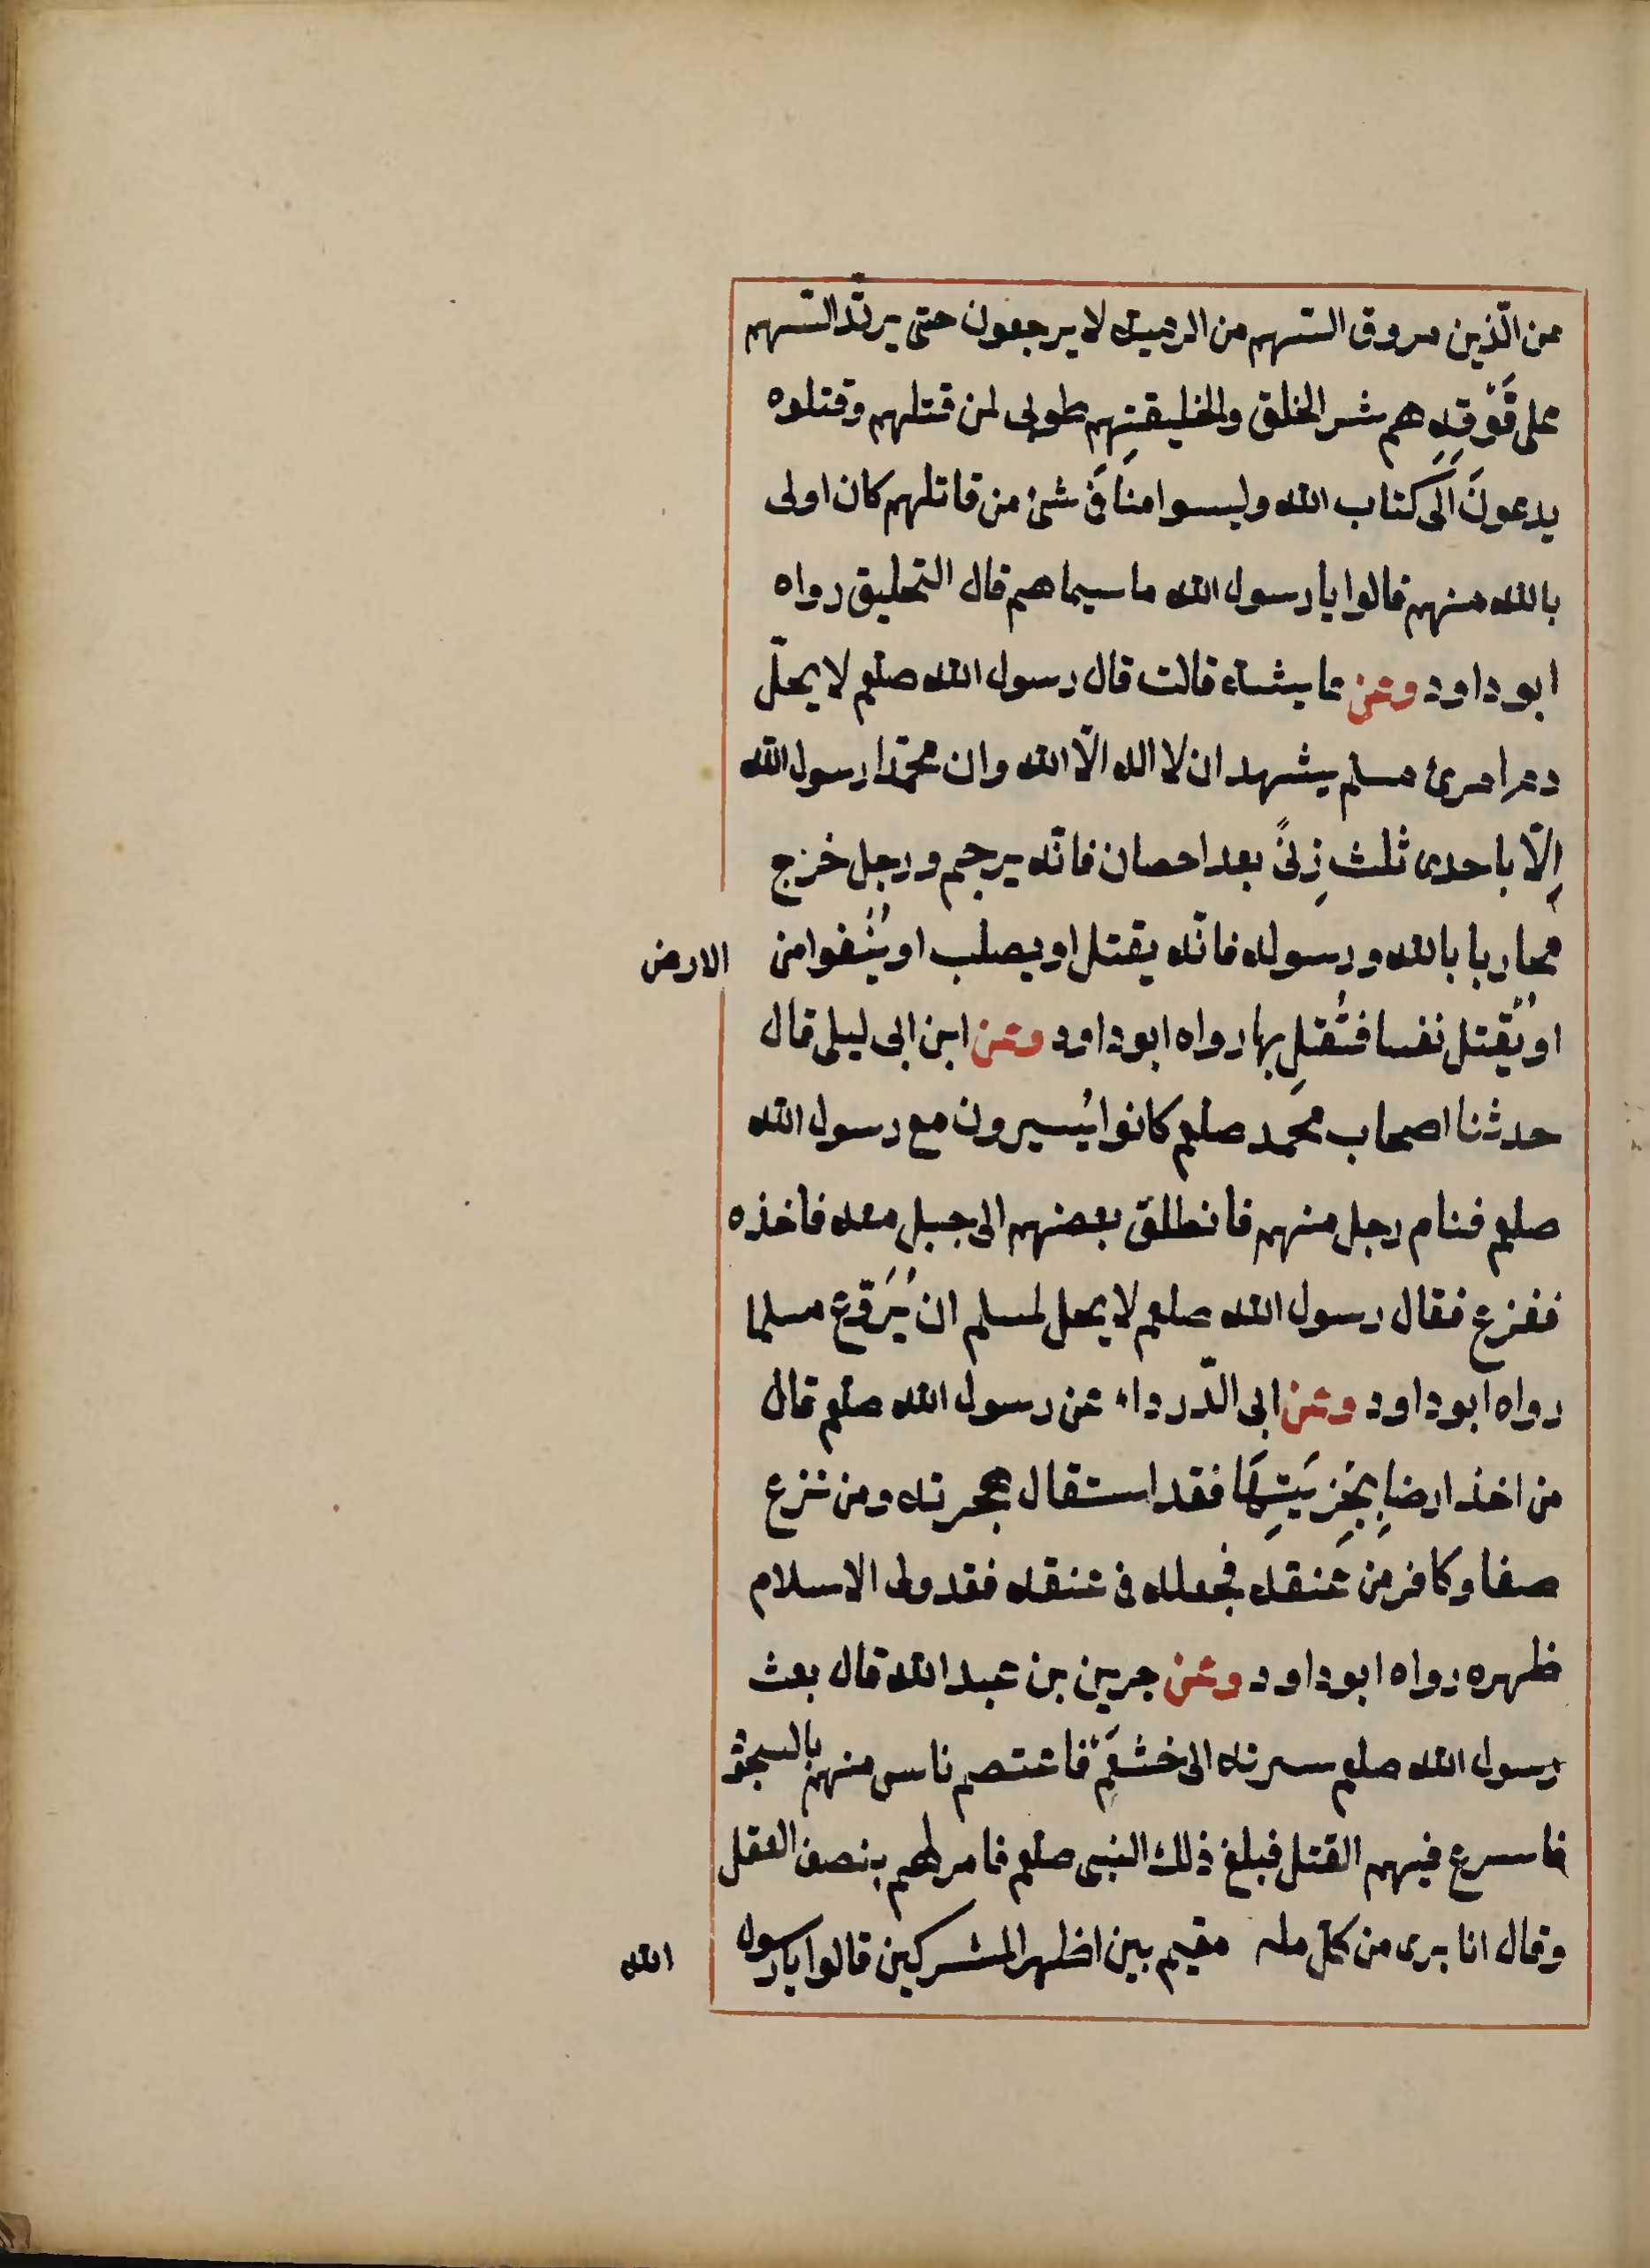 من الّذين مروق السّهم من الرميته لا يرجعون حتى يرتدّ السّهم
على فَوْقِهِ هم شر الخلق والخليقتِهم طوبى لمن قتلهم وقتلوه
يدعونَ الَى كتاب الله وليسوا مناَ فَى شئ من قاتلهم كان اولى
بالله منهم قالوا يا رسول الله ما سيما هم قال التحليق رواه
ابو داود وعن عايشة قالت قال رسول الله صلعم لا يحلّ
دم امرئ مسلم يشهد ان لا اله الّا الله وان محمّدا رسول الله
اِلّا باحدى ثلث زِنىً بعد احصان فانّه يرجم ورجل خرج
محاربا بالله ورسوله فانّه يقتل او يصلب او يُنْفوا من الارض
او يُقتل نفسا فتُقتلِ بها رواه ابو داود وعن ابن ابى ليلى قال
حدثنا اصحاب محمد صلعم كانوا يُسيرون مع رسول الله
صلعم فنام رجل منهم فانطلق بعضهم الى جبل معه فاخذه
ففزع فقال رسول الله صلعم لا يحل لمسلم ان يُرَوّع مسلما
رواه ابو داود وعن ابى الدّرداء عن رسول الله صلعم قال
من اخذ ارضا بِجِزيَتِهَا فقد استقال هجرته ومن نزع
صغا وكافر من عنقه فجعله فى عنقه فقد ولى الاسلام
ظهره رواه ابو داود وعن جرير بن عبد الله قال بعث
رسول الله صلعم سرته الى خشعَمْ فاعتصم ناس منهم بالسجو
فاسرع فيهم القتل فبلغ ذلك النبى صلعم فامر لهم بنصف العقل
وقال انا برى من كل مله مقيم بين اظهر المشركين قالوا يا رسول الله